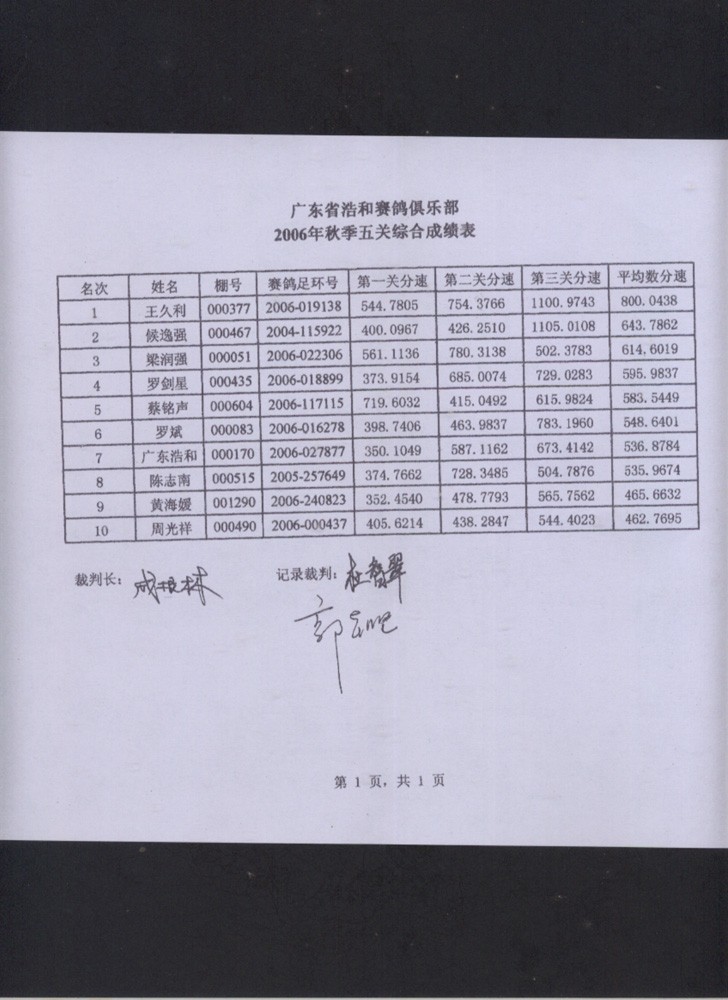 广东省浩和赛鸽俱乐部
2006年秋季五关综合成绩表
名次 姓名 棚号 赛鸽足环号 第一关分速 第二关分速 第三关分速 平均数分速
1 王久利 000377 2006-019138 544.7805 754.3766 1100.9743 800.0438
2 候逸强 000467 2004-115922 400.0967 426.2510 1105.0108 643.7862
3 梁润强 000051 2006-022306 561.1136 780.3138 502.3783 614.6019
4 罗剑星 000435 2006-018899 373.9154 685.0074 729.0283 595.9837
5 蔡铭声 000604 2006-117115 719.6032 415.0492 615.9824 583.5449
6 罗斌 000083 2006-016278 398.7406 463.9837 783.1960 548.6401
7 广东浩和 000170 2006-027877 350.1049 587.1162 673.4142 536.8784
8 陈志南 000515 2005-257649 374.7662 728.3485 504.7876 535.9674
9 黄海媛 001290 2006-240823 352.4540 478.7793 565.7562 465.6632
10 周光祥 000490 2006-000437 405.6214 438.2847 544.4023 462.7695
裁判长: 记录裁判:
第 1 页, 共 1 页